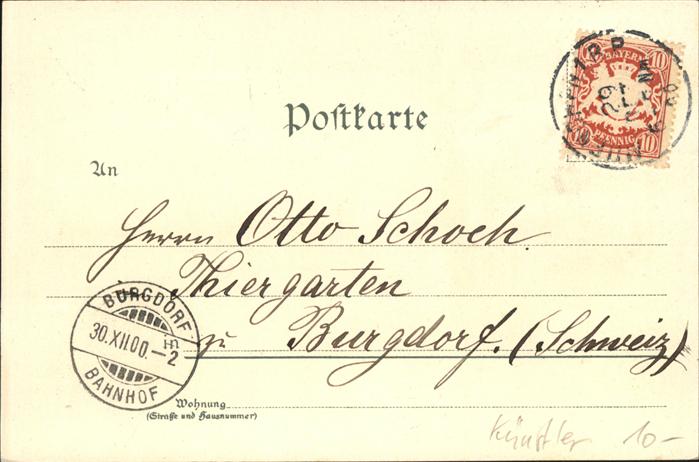 Postkarte
BAYERN
10 10
PFENNIG
10 10
An
Herrn Otto Schoch
Thiergarten
zu Burgdorf. (Schweiz)
BURGDORF
30.XII.00.-2
BAHNHOF
Wohnung
(Straße und Hausnummer)
Künstler 10-